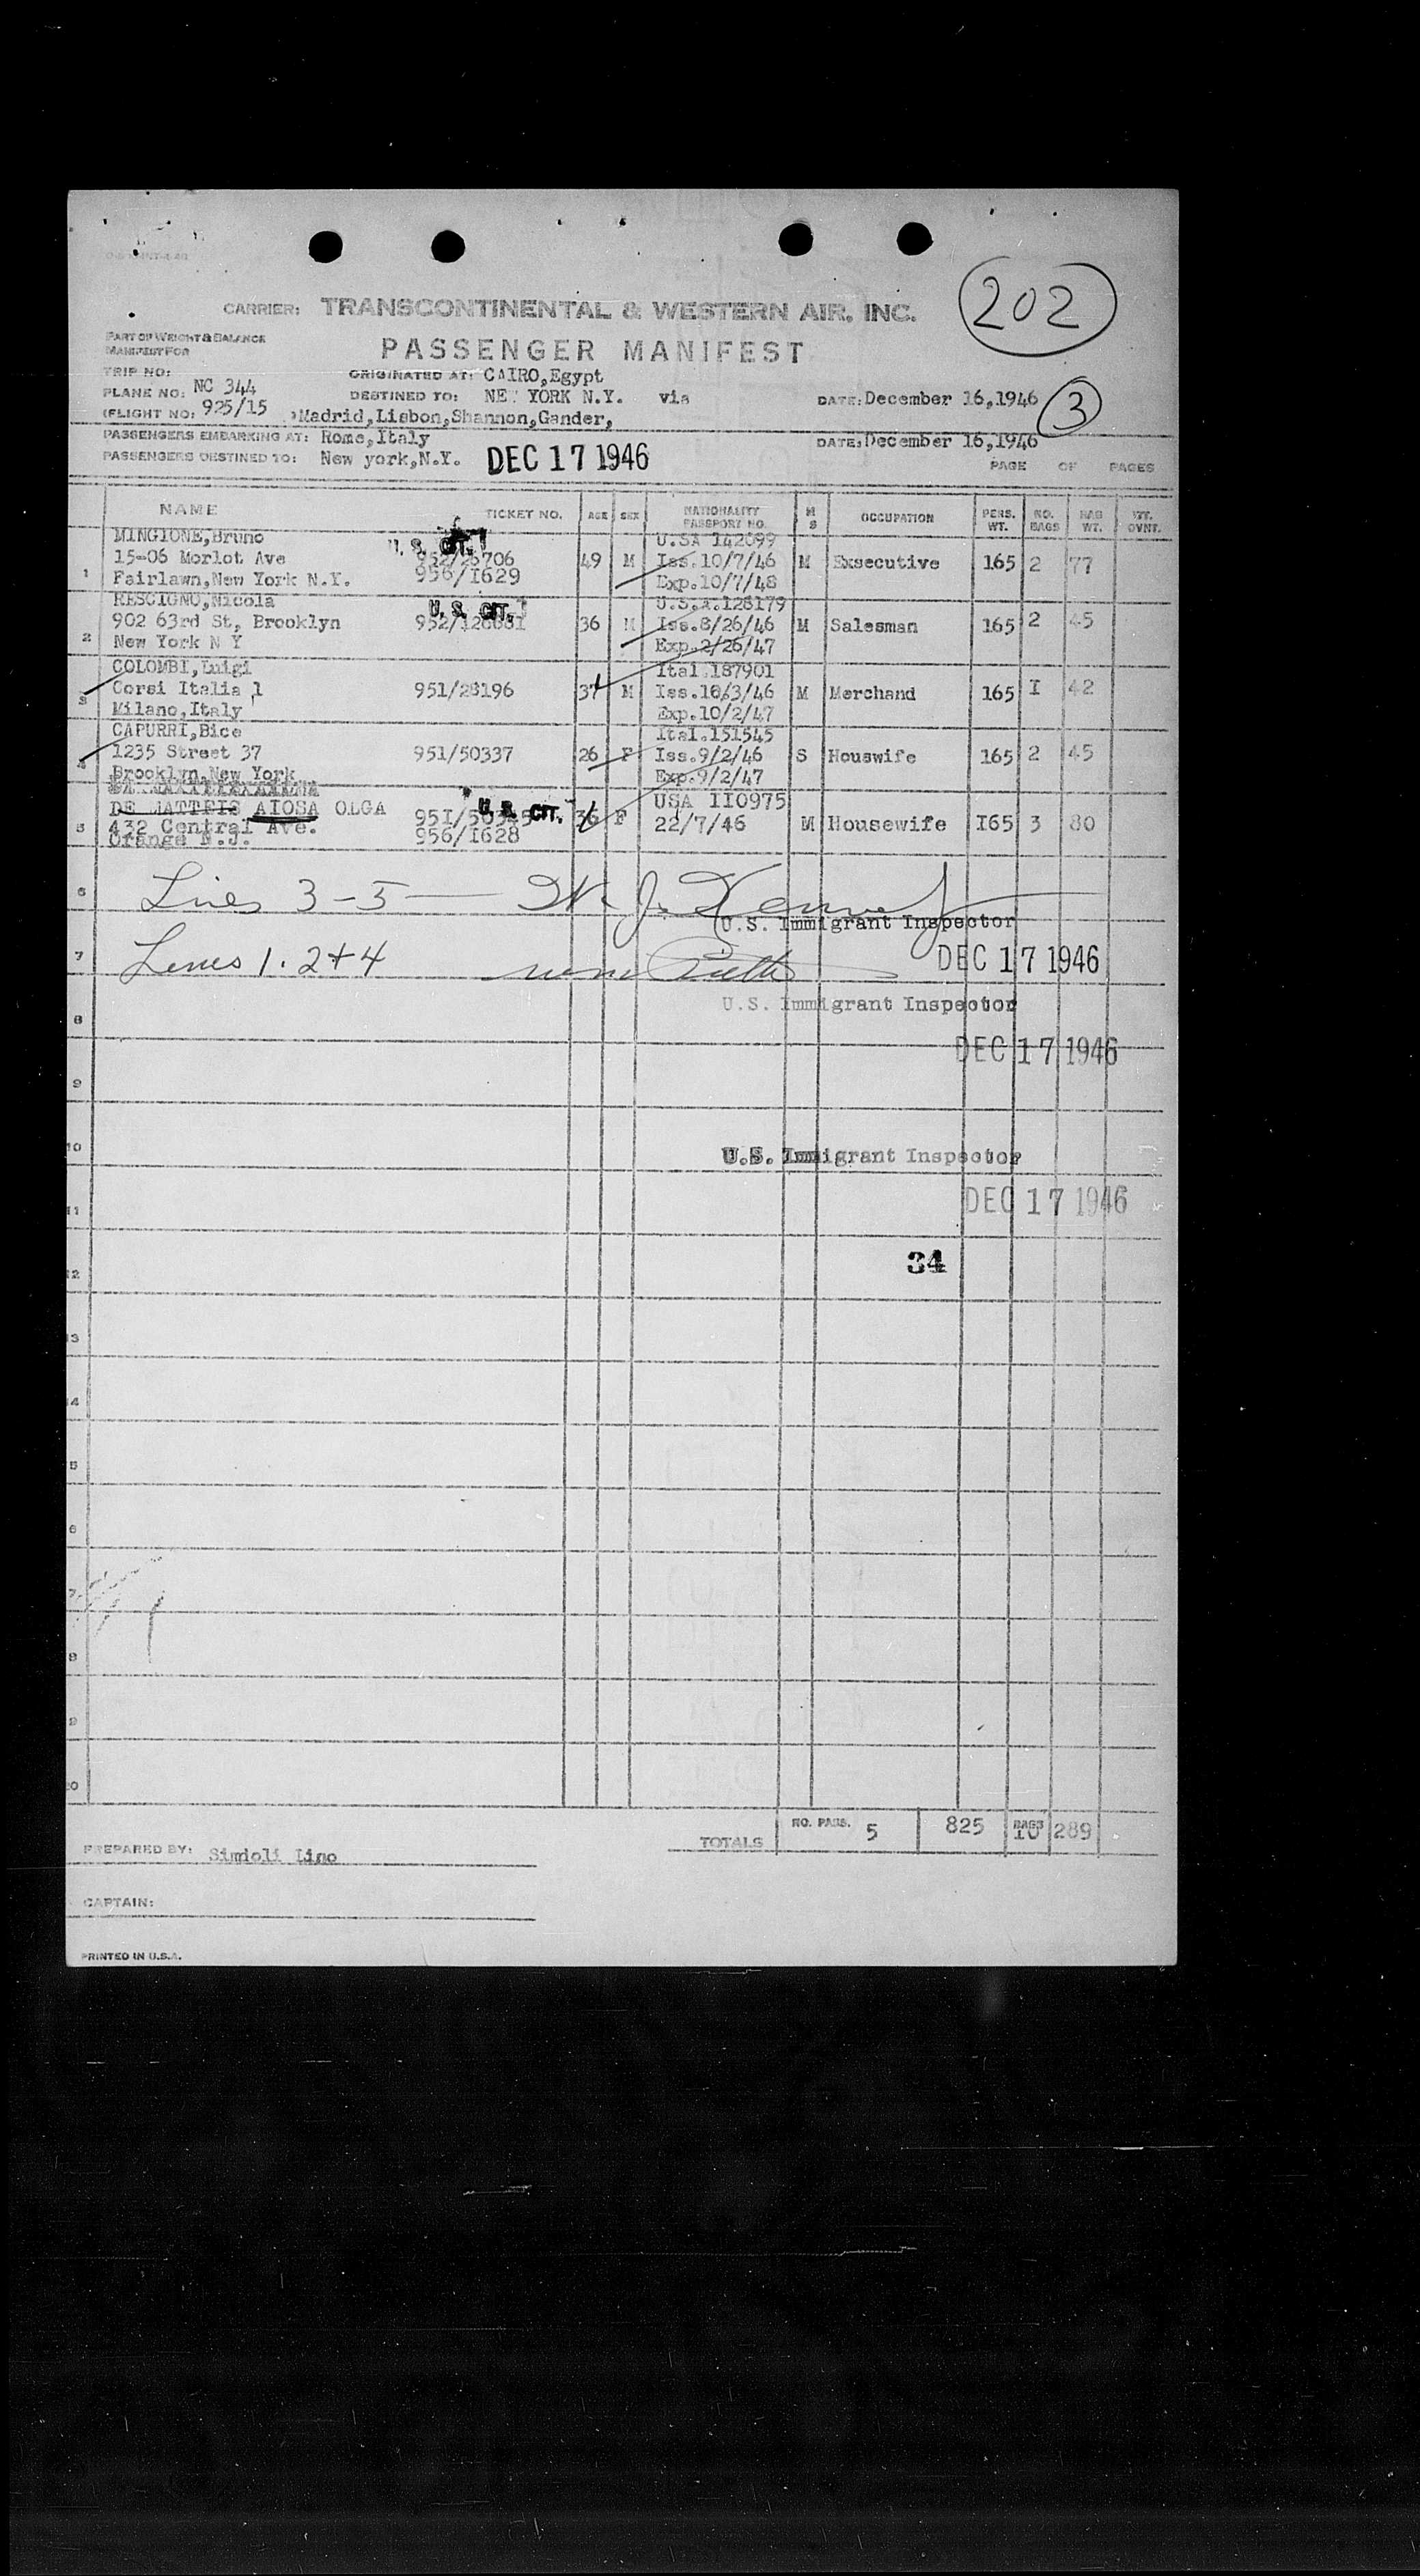 202
CARRIER: TRANSCONTINENTAL & WESTERN AIR, INC.
PART OF WEIGHT & BALANCE
MANIFEST FOR
PASSENGER MANIFEST
TRIP NO:
ORIGINATED AT: CAIRO,Egypt
PLANE NO: NC 344
DESTINED TO: NE YORK N.Y. via
DATE: December 16,1946
3
(FLIGHT NO: 925/15 )Madrid,Lisbon,Shannon,Gander,
PASSENGERS EMBARKING AT: Rome,Italy
DATE: December 16,1946
PASSENGERS DESTINED TO: New york,N.Y. DEC 17 1946
PAGE OF PAGES
NAME TICKET NO. AGE SEX NATIONALITY PASSPORT NO. M S OCCUPATION PERS. WT. NO. BAGS BAG WT. WT. OVNT.
MINGIONE,Bruno U. S. CIT. U.SA 142099
15-06 Morlot Ave 952/26706 49 M Iss.10/7/46 M Exsecutive 165 2 77
1 Fairlawn,New York N.Y. 956/I629 Exp.10/7/48
RESCIGNO,Nicola U. S. CIT. U.S.A.128179
902 63rd St, Brooklyn 36 M Iss.8/26/46 M Salesman 165 2 45
2 New York N Y Exp.2/26/47
COLOMBI,Luigi Ital.187901
3 Corsi Italia 1 951/28196 37 M Iss.10/3/46 M Merchand 165 I 42
Milano,Italy Exp.10/2/47
CAPURRI,Bice Ital.151545
4 1235 Street 37 951/50337 26 F Iss.9/2/46 S Houswife 165 2 45
Brooklyn,New York Exp.9/2/47
DE MATTEIS AIOSA OLGA U. S. CIT. USA II0975
5 432 Central Ave. 95I/50345 36 F 22/7/46 M Housewife I65 3 80
Orange N.J. 956/I628
6 Lines 3-5 — J. Kenney
U.S. Immigrant Inspector
7 Lines 1. 2 + 4 DEC 17 1946
U.S. Immigrant Inspector
8
DEC 17 1946
9
10 U.S. Immigrant Inspector
11 DEC 17 1946
34
12
13
14
15
16
17
18
19
20
TOTALS NO. PASS. 5 825 BAGS 10 289
PREPARED BY: Simioli Lino
CAPTAIN:
PRINTED IN U.S.A.